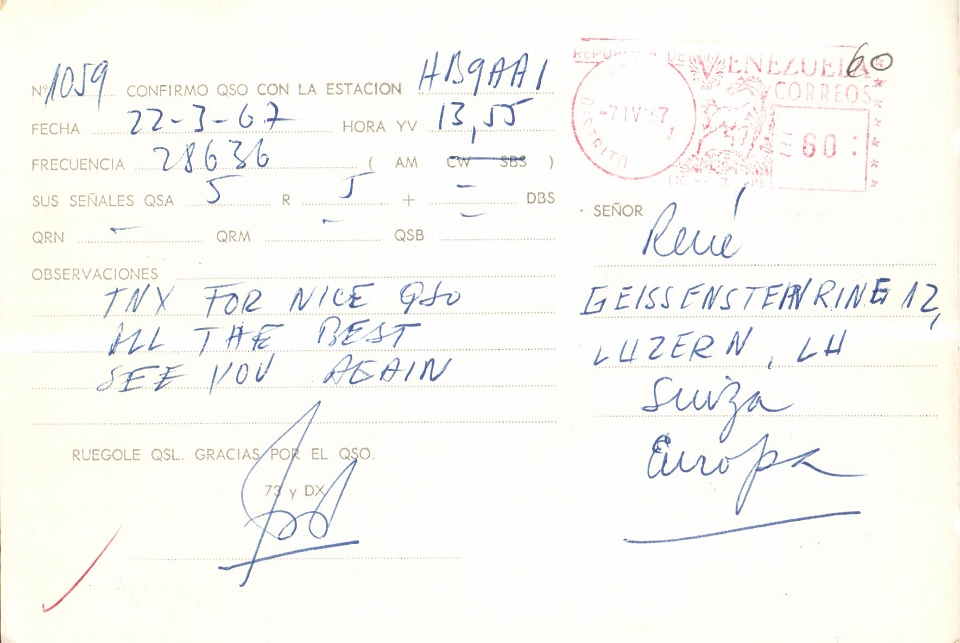 Nº 1059 CONFIRMO QSO CON LA ESTACION HB9AAI
FECHA 22-3-67 HORA YV 13,55
FRECUENCIA 28636 ( AM CW SBS )
SUS SEÑALES QSA 5 R 5 + - DBS
QRN - QRM - QSB -
OBSERVACIONES
TNX FOR NICE QSO
ALL THE BEST
SEE YOU AGAIN
RUEGOLE QSL. GRACIAS POR EL QSO.
73 y DX
REPUBLICA DE VENEZUELA
CORREOS
60
7 IV 67
DISTRITO
60
SEÑOR
René
GEISSENSTEINRING 12,
LUZERN, LU
Suiza
Europa